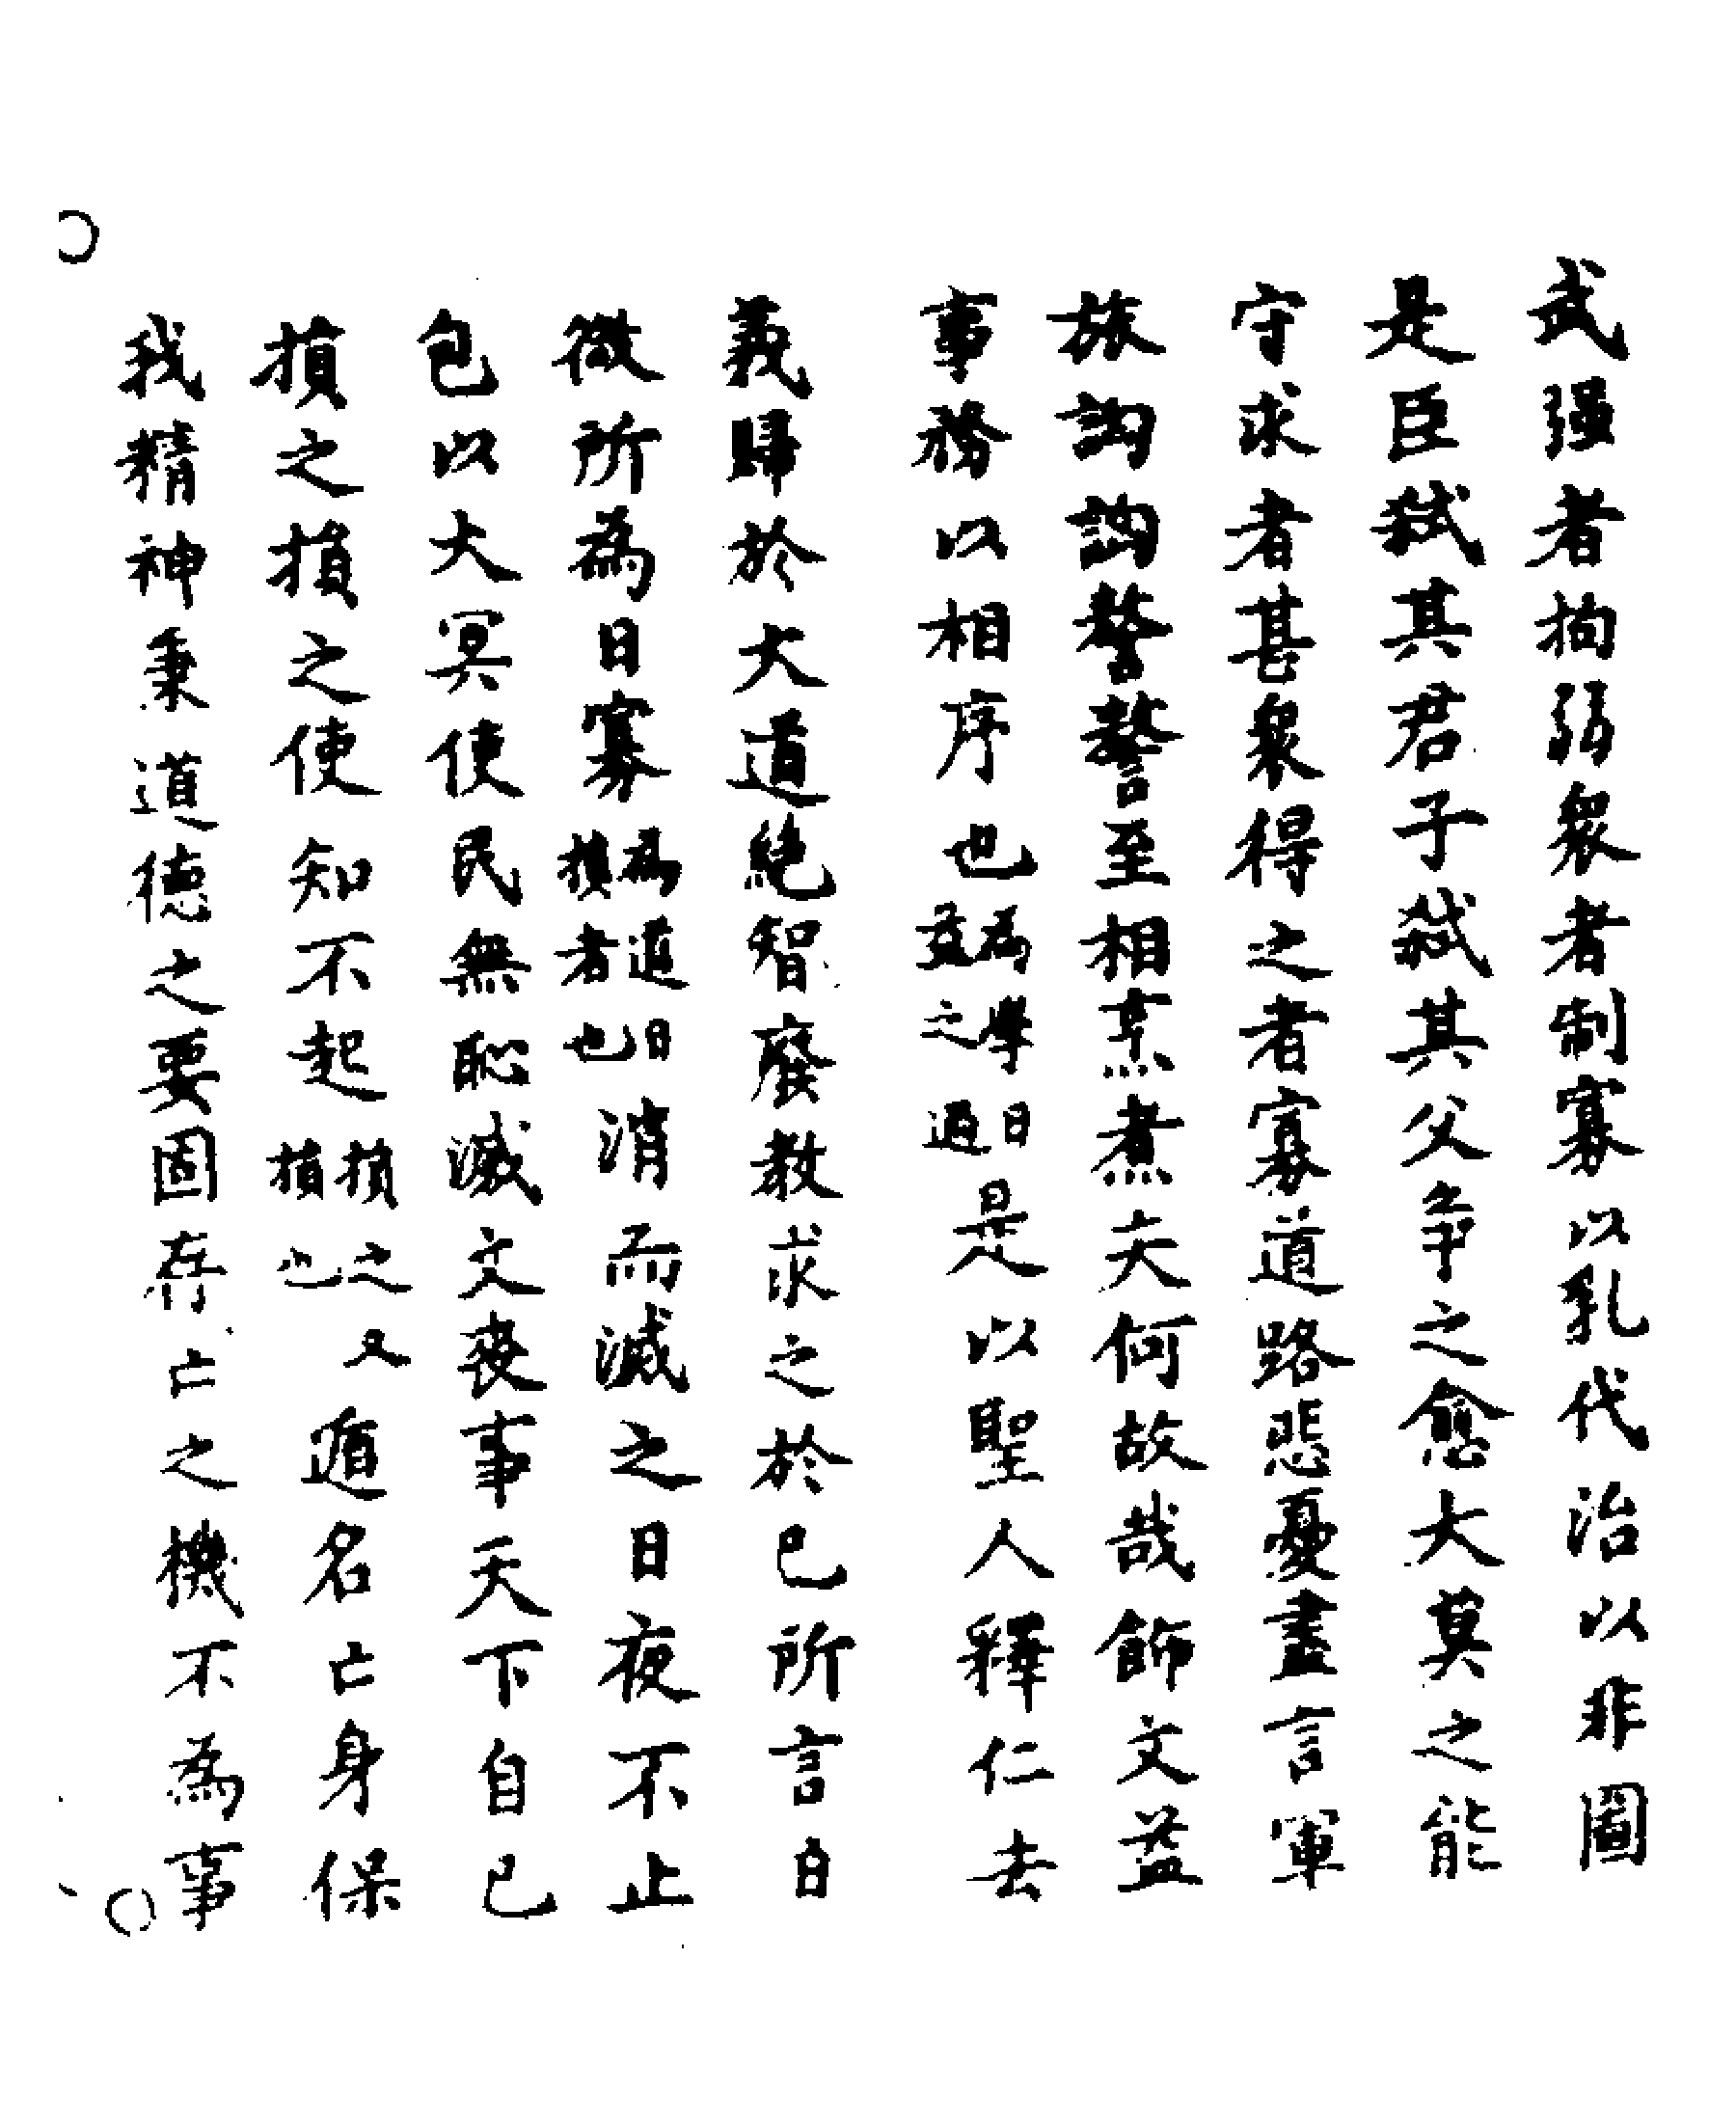 武强者拘弱衆者制寡以乱代治以非圖
是臣弑其君子弑其父争之愈大莫之能
守求者甚衆得之者寡道路悲憂盡言軍
旅詢詢警警至相烹煮夫何故哉飾文益
事務以相序也為學日益之過是以聖人釋仁去
義歸於大道絶智廢教求之於己所言日
微所為日寡為道日損者也消而滅之日夜不止
包以大冥使民無恥滅文喪事天下自已
損之損之使知不起損之又損也遁名亡身保
我精神秉道德之要固存亡之機不為事